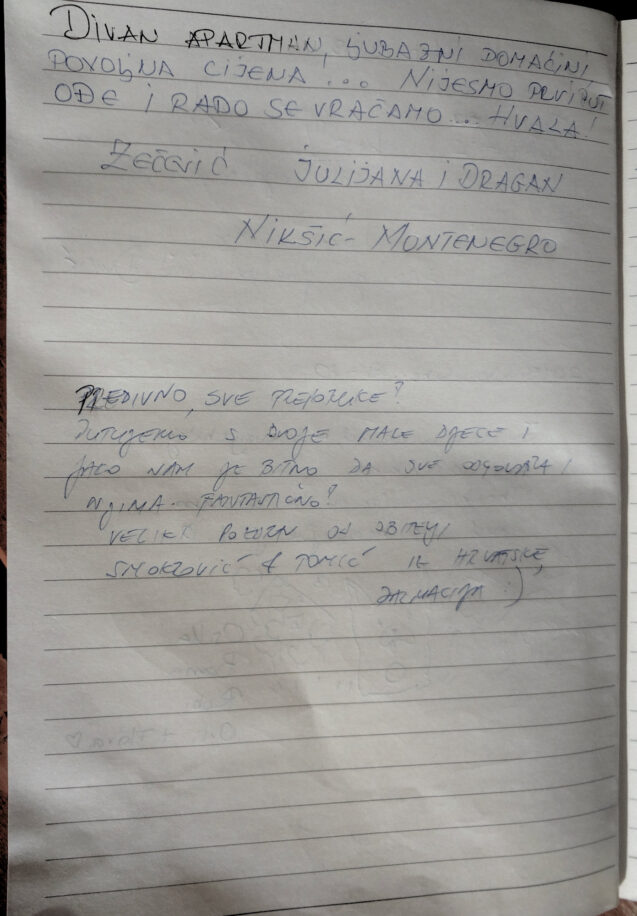 DIVAN APARTMAN, LJUBAZNI DOMAĆINI,
POVOLJNA CIJENA ... NIJESMO PRVI PUT
OĐE I RADO SE VRAĆAMO... HVALA!
ZEČEVIĆ JULIJANA I DRAGAN
NIKŠIĆ - MONTENEGRO
PREDIVNO, SVE PREPORUKE!
PUTUJEMO S DVOJE MALE DJECE I
JAKO NAM JE BITNO DA SVE ODGOVARA I
NJIMA. FANTASTIČNO!
VELIKI POZDRAV OD OBITELJI
SMOKROVIĆ & TOMIĆ IZ HRVATSKE,
DALMACIJA :)